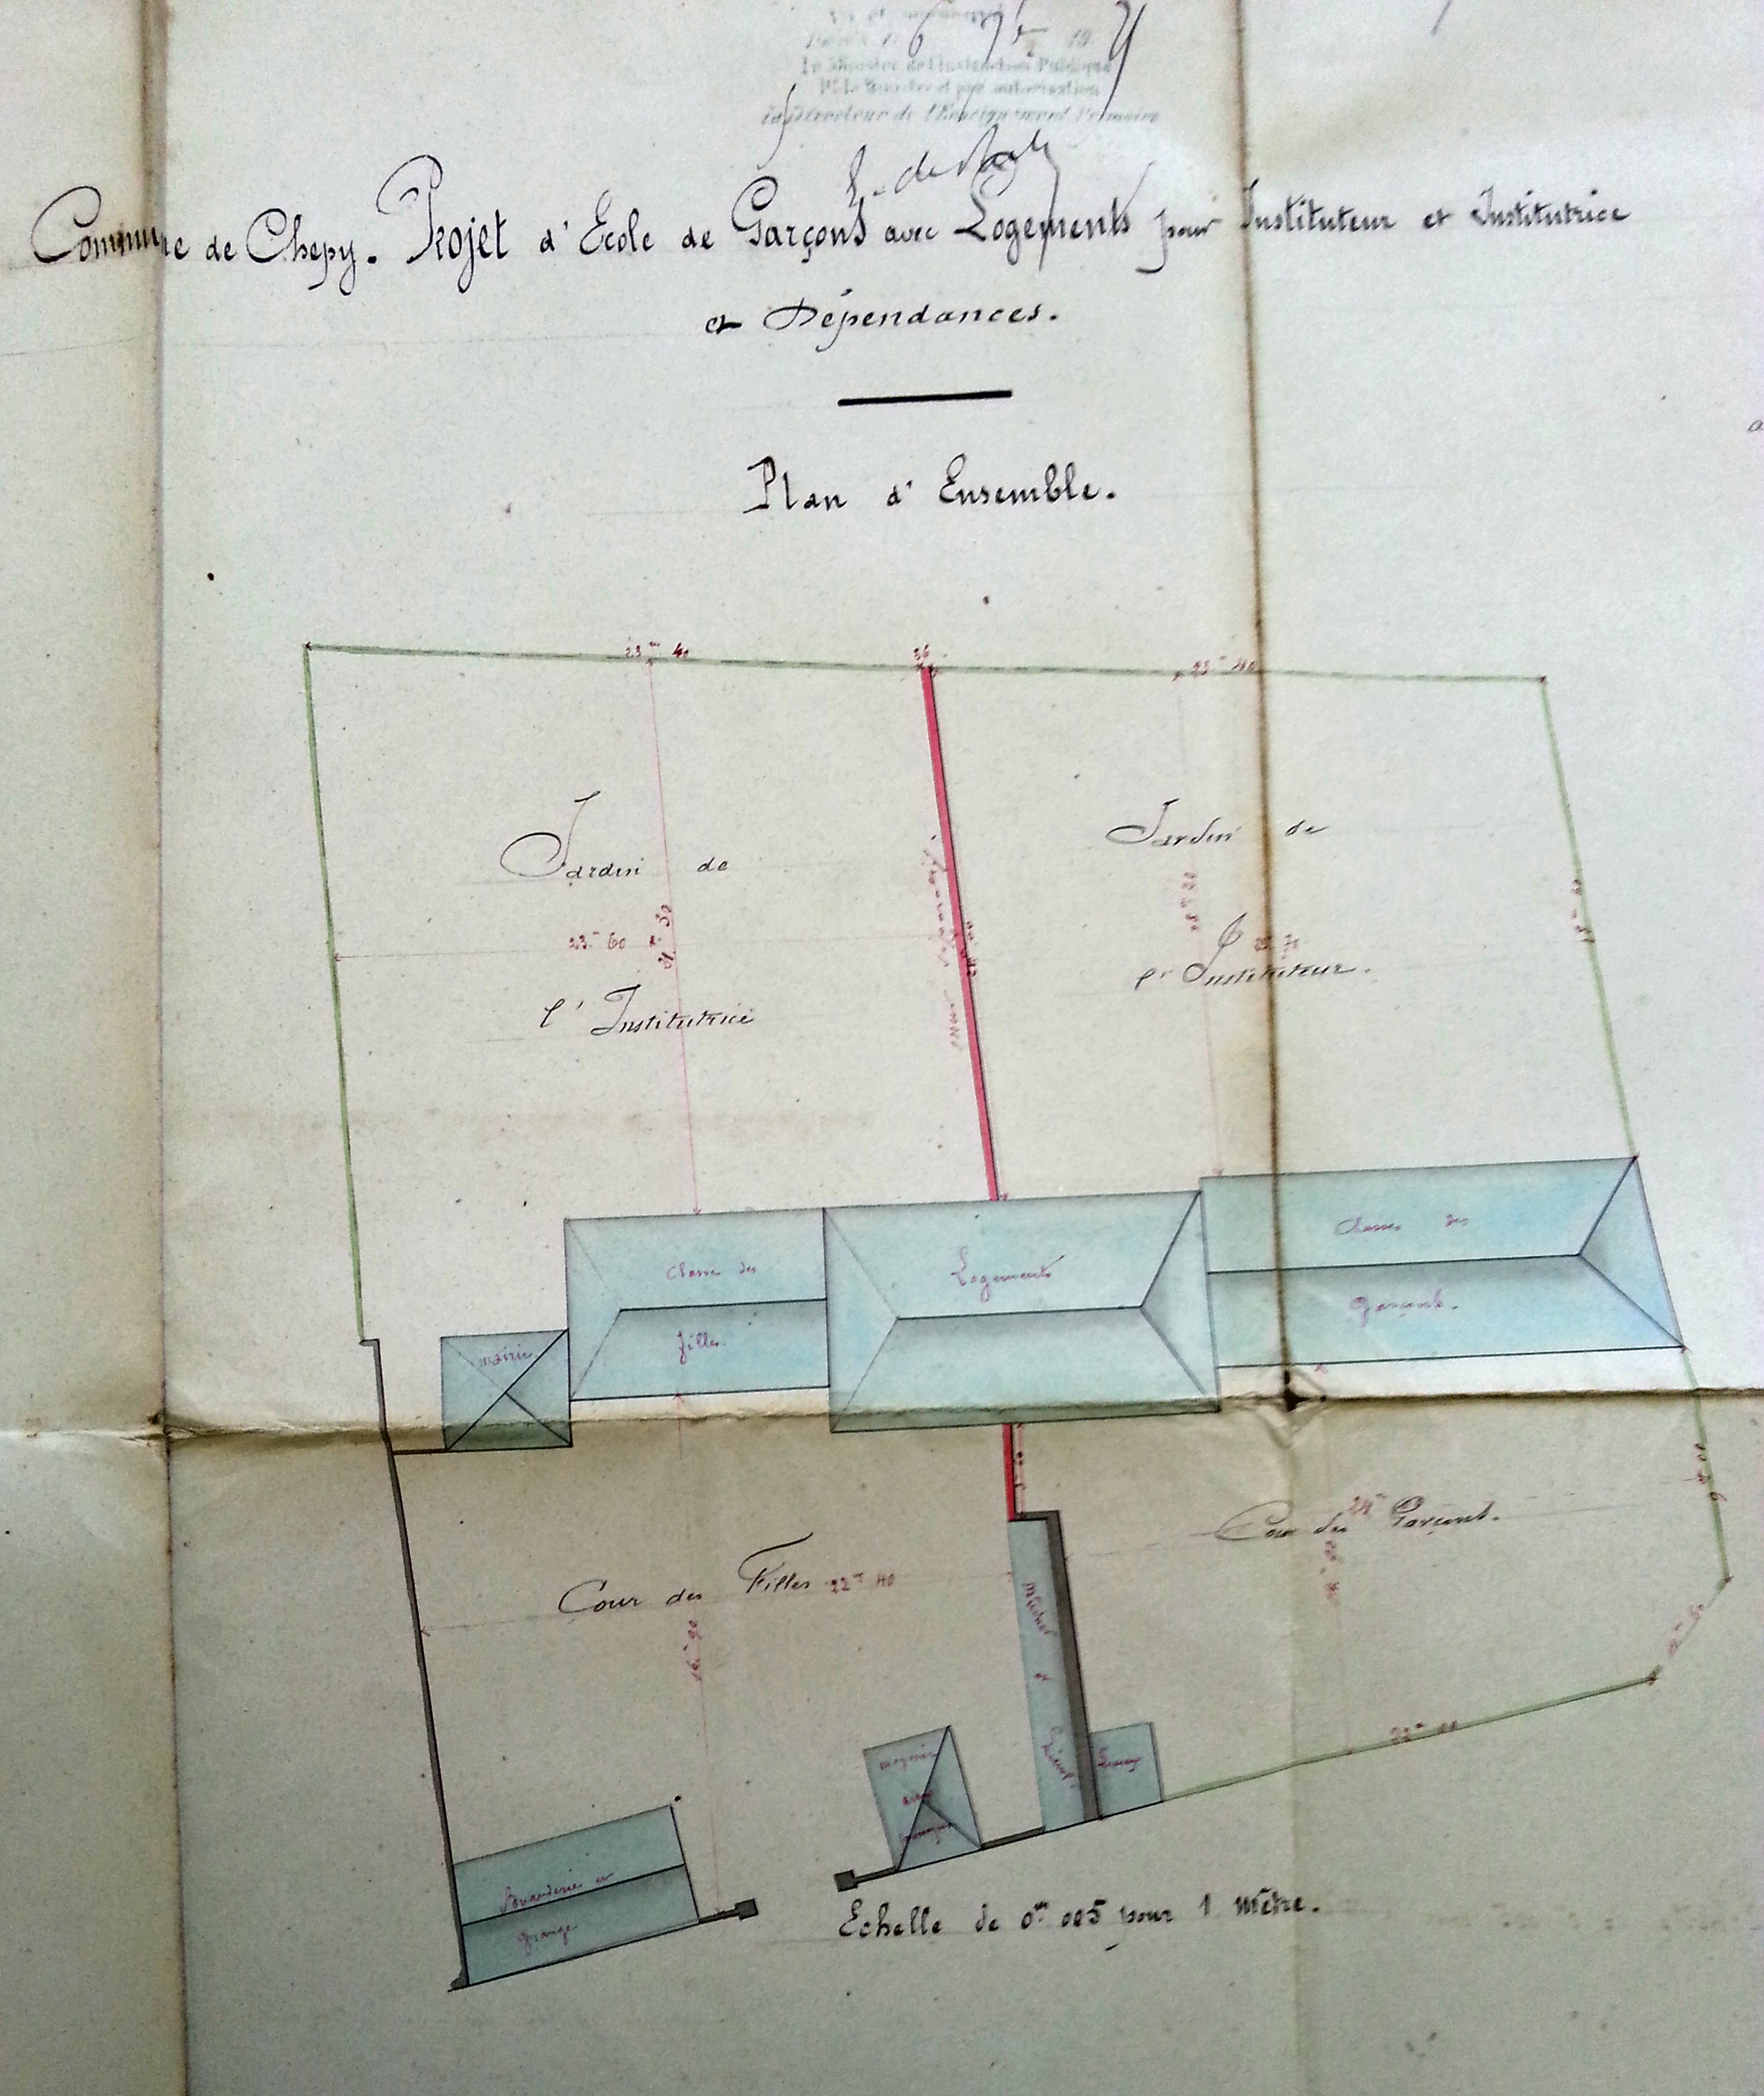 Le Ministre de l'Instruction Publique
Pr. le Ministre et par autorisation
Le Directeur de l'Enseignement Primaire
Commune de Chepy. Projet d'Ecole de Garçons avec Logements pour Instituteur et Institutrice
et Dépendances.
Plan d'Ensemble.
23m 40
36
23m 40
Jardin de
l'Institutrice
23m 60
Jardin de
l'Instituteur.
Classe des
filles.
Logements
Classes des
garçons.
mairie
Cour des Filles
22m 40
16m 90
Cour des Garçons.
24m
9m 00
22m 00
Bûcher
magasin
Buanderie et
grange
Echelle de 0m 005 pour 1 mètre.